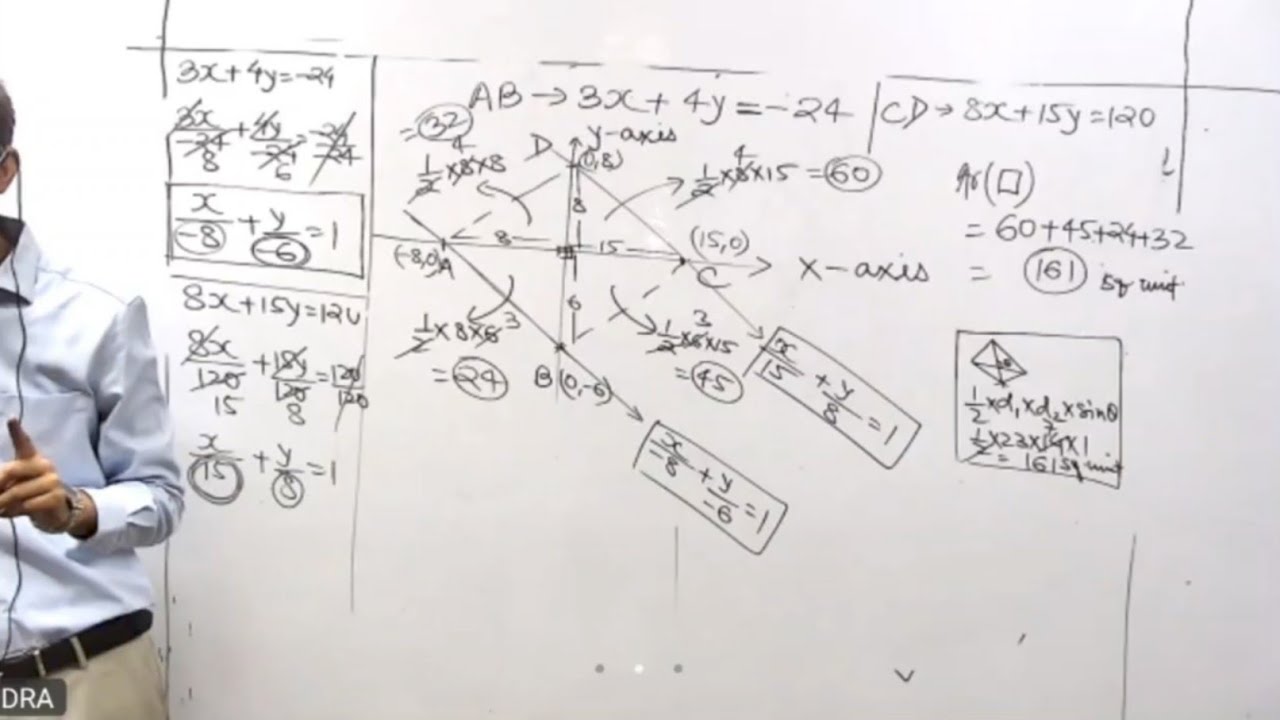 3x+4y=-24
3x/-24 + 4y/-24 = -24/-24
8 6
x/-8 + y/-6 = 1
8x+15y=120
8x/120 + 15y/120 = 120/120
15 8
x/15 + y/8 = 1
AB → 3x+4y=-24
CD → 8x+15y=120
= 32
4
1/2 × 8 × 8
D
y-axis
(0,8)
4
1/2 × 8 × 15 = 60
8
8
15
(15,0)
(-8,0) A
C
x-axis
6
1/2 × 8 × 6 3
= 24
B (0,-6)
3
1/2 × 6 × 15
= 45
x/15 + y/8 = 1
x/-8 + y/-6 = 1
Ar(□)
= 60+45+24+32
= 161 sq unit
θ
1/2 × d₁ × d₂ × sinθ
7
1/2 × 23 × 14 × 1
= 161 sq unit
DRA